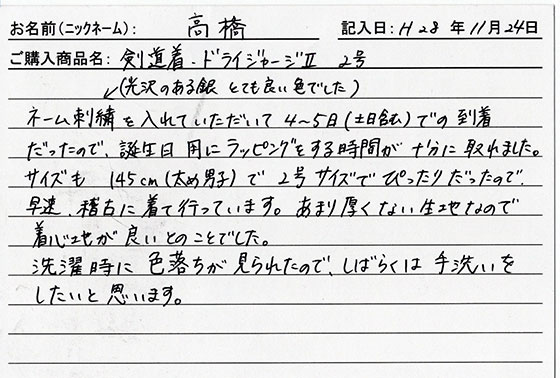 お名前(ニックネーム): 高橋 記入日: H28年11月24日
ご購入商品名: 剣道着・ドライジャージⅡ 2号
(光沢のある銀 とても良い色でした)
ネーム刺繍を入れていただいて4~5日(土日含む)での到着
だったので、誕生日用にラッピングをする時間が十分に取れました。
サイズも145cm(太め男子)で2号サイズでぴったりだったので、
早速、稽古に着て行っています。あまり厚くない生地なので
着心地が良いとのことでした。
洗濯時に色落ちが見られたので、しばらくは手洗いを
したいと思います。